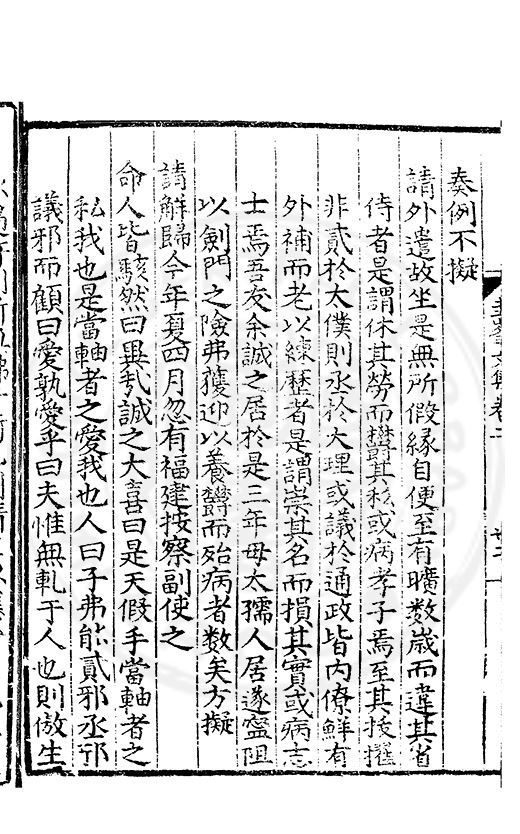 奏例不擬
請外遣故坐是無所假緣自便至有曠数歲而違其省
侍者是謂休其勞而欝其私或病孝子焉至其援擢
非貳於太僕則丞於大理或議於通政皆内僚鮮有
外補而老以練歷者是謂崇其名而損其實或病志
士焉吾友余誠之居於是三年母太孺人居遂寧阻
以劍門之險弗獲迎以養欝而殆病者数矣方擬
請解歸今年夏四月忽有福建按察副使之
命人皆駭然曰異哉誠之大喜曰是天假手當軸者之
私我也是當軸者之愛我也人曰子弗能貳邪丞邪
議邪而顧曰愛孰愛乎曰夫惟無軋于人也則倣生